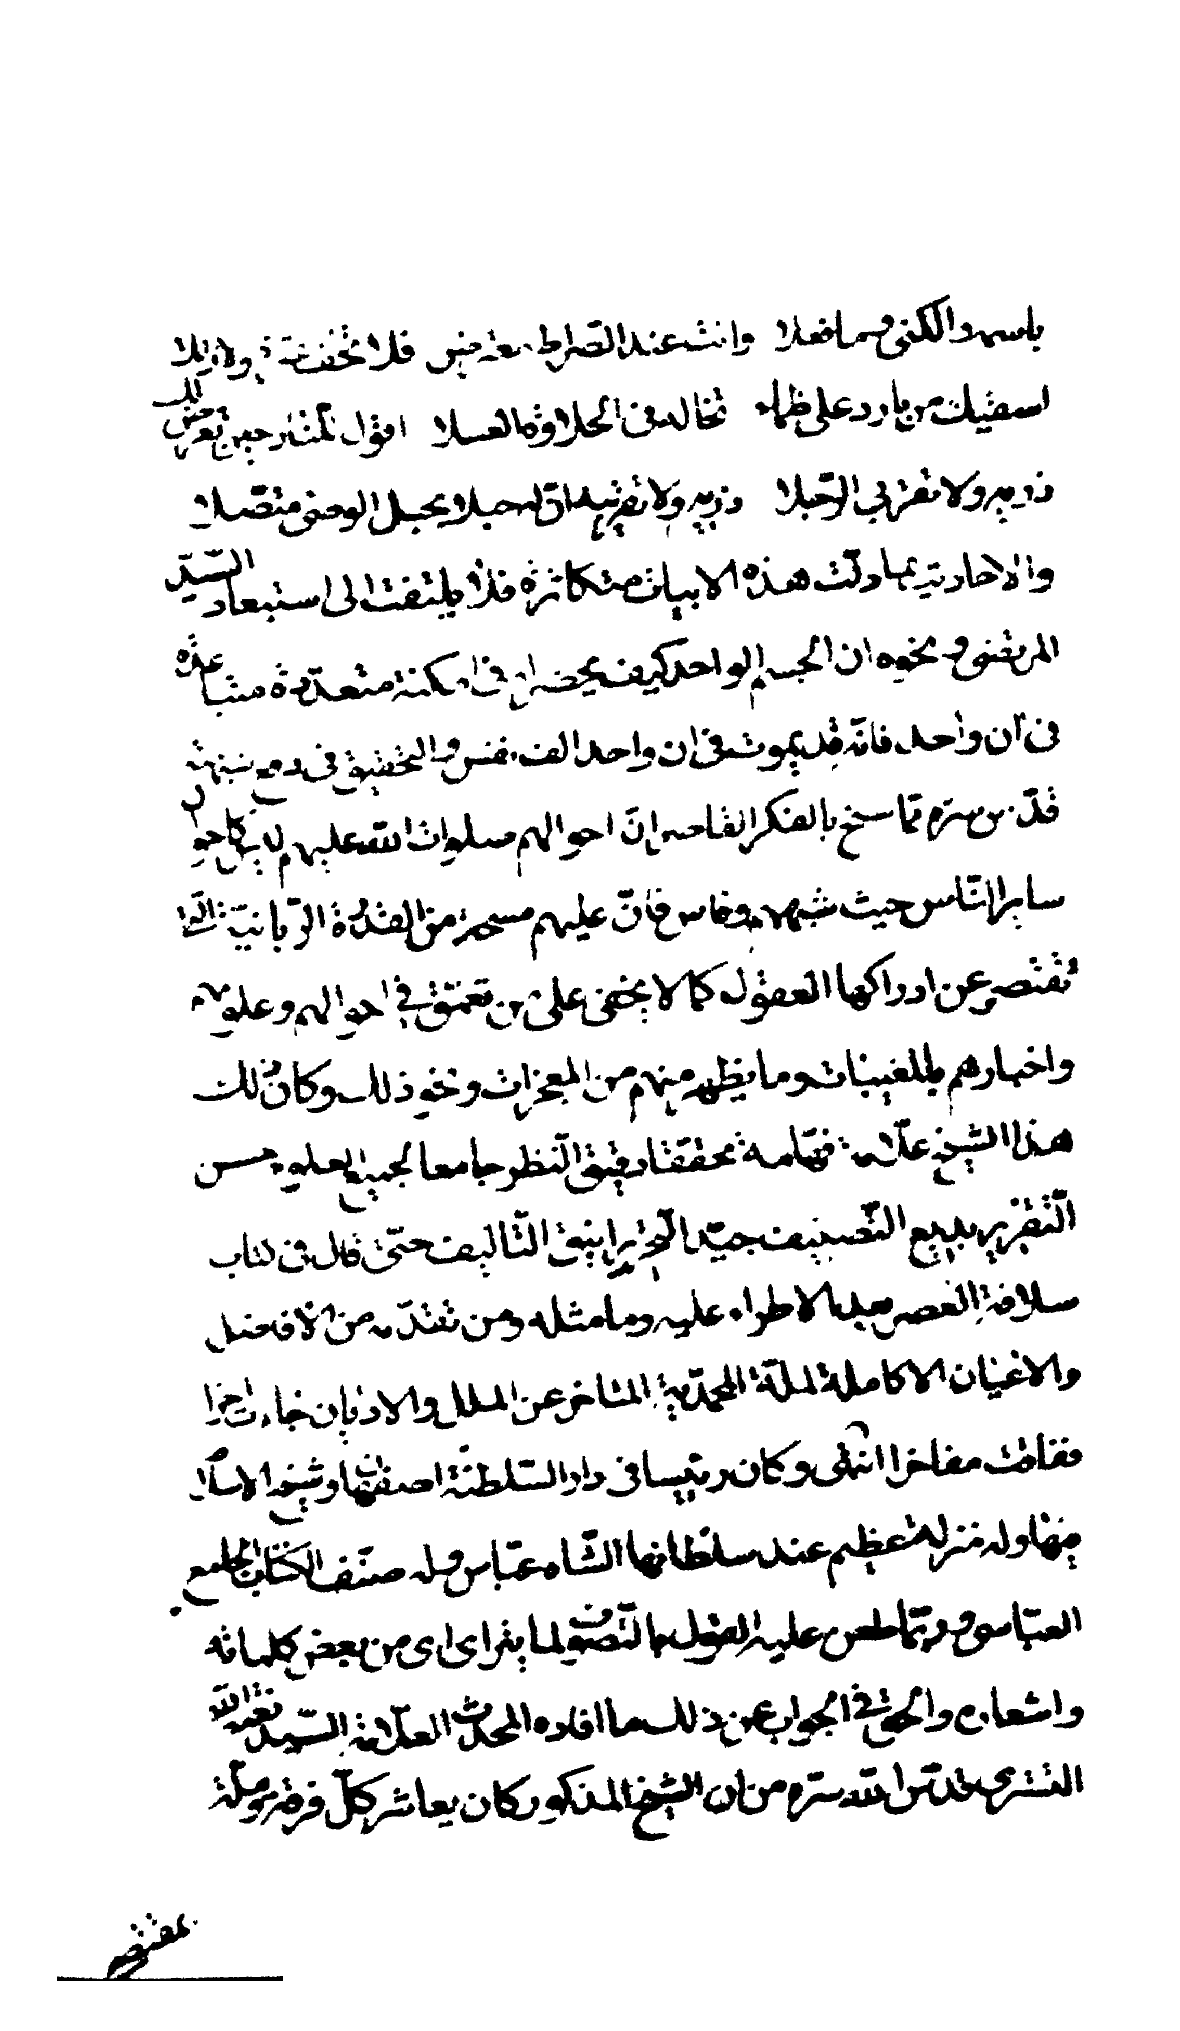 باسمه والكنى وما فعلا وانت عند الصراط معترض فلا تخف عثرة ولا زللا
اسقيك من بارد على ظماء تخاله فى الحلاوة العسلا اقول للنار حين تعرض لك
ذريه ولا تقربى الرجلا ذريه ولا تقربيه ان له حبلا بحبل الوصى متصلا
والاحاديث بما دلت هذه الابيات متكاثرة فلا يلتفت الى استبعاد السيد
المرتضى ره ونحوه ان الجسم الواحد كيف يحضر فى امكنة متعددة متباعدة
فى آن واحد فانه قد يموت فى ان واحد الف نفس والتحقيق فى دفع شبهته
قدس سره مما سنح بالفكر القاصر ان احوالهم صلوات الله عليهم ليس كاحوال
ساير الناس حيث شبههم وقاس فان عليهم مسحة من القدرة الربانية التى
تقتصر عن ادراكها العقول كما لا يخفى على من تعمق فى احوالهم وعلومهم
واخبارهم بالمغيبات وما يظهر منهم من المعجزات ونحو ذلك وكان ذلك
هذا الشيخ علامة فهامة محققا دقيق النظر جامعا لجميع العلوم حسن
التقرير بديع التصنيف جيد التحرير انيق التأليف حتى قال فى كتاب
سلافة العصر بعد الاطراء عليه وما مثله ومن تقدمه من الافاضل
والاعيان الا كالملة المحمدية المتاخرة عن الملل والاديان جاءت اخرا
ففاقت مفاخرا انتهى وكان رئيسا فى دار السلطنة اصفهان وشيخ الاسلام
فيها وله منزلة عظيم عند سلطانها الشاه عباس وله صنف الكتاب الجامع
العباسى وربما طعن عليه القول بالتصوف لما يتراءى من بعض كلماته
واشعاره والحق فى الجواب عن ذلك ما افاده المحدث العلامة السيد نعمة الله
التسترى قدس الله سره من ان الشيخ المذكور كان يعاشر كل فرقة وملة
بمقتضى